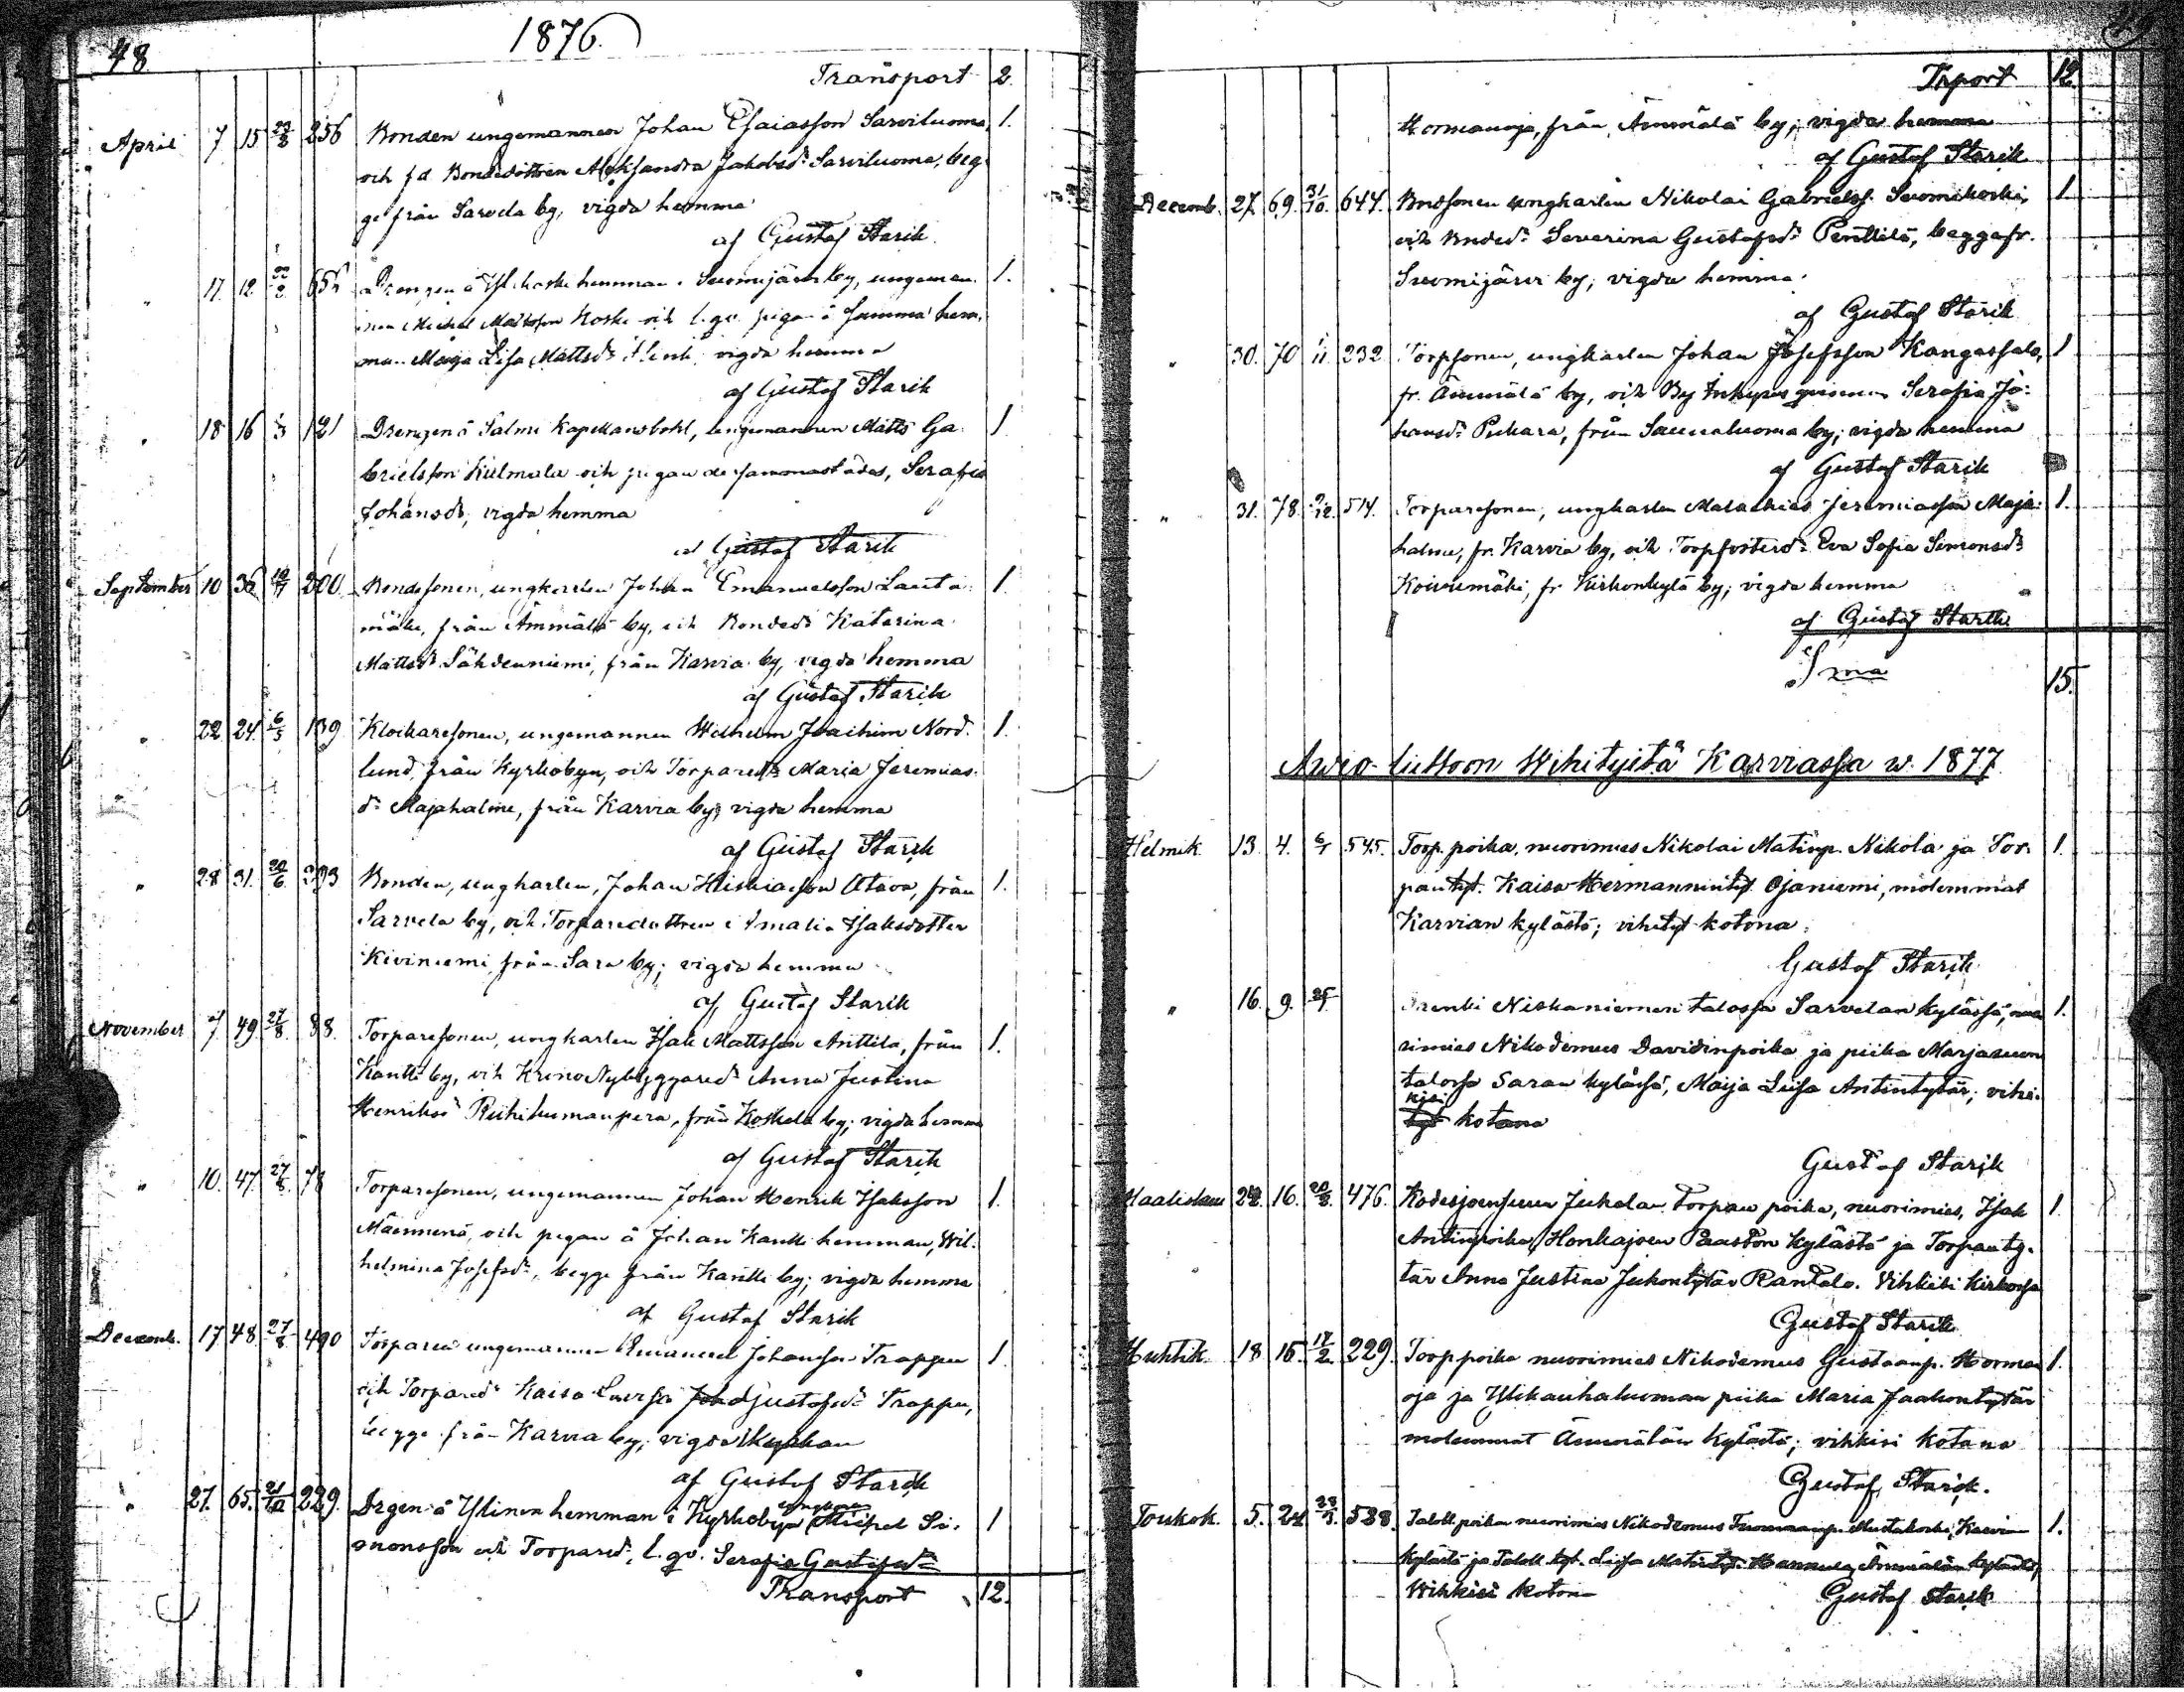 48
1876.
Transport 2.
April 7 15 256 Bonden ungemannen Johan Esaiasson Sarviluoma, 1.
och fd Bondedottren Aleksandra Jakobsdr Sarviluoma, beg-
ge från Sarvela by, vigda hemma
af Gustaf Starik.
" 17 12 Drengen å Yli koski hemman i Suomijärvi by, ungeman- 1.
nen Michel Mattsson Koski och l. qv. pigan å samma hem-
man Maija Lisa Mattsdr vigda hemma
af Gustaf Starik
" 18 16 1/3 121 Drengen å Salmi Kapellansbohl, ungemannen Matts Ga- 1
brielsson Kulmala och pigan der sammastädes, Serafia
Johansdr, vigda hemma
af Gustaf Starik
September 10 36 200 Bondesonen, ungkarlen Johan Emanuelsson Lauta- 1.
mäki, från Ämmälä by, och Bondedr Katarina
Mattsdr Lähdenniemi, från Karvia by, vigda hemma
af Gustaf Starik
" 22 24. 6/5 139 Klockaresonen, ungemannen Wilhelm Joachim Nord- 1.
lund, från Kyrkobyn, och Torparedr Maria Jeremias-
dr Majahalme, från Karvia by; vigda hemma
af Gustaf Starik
" 28 31. 20/6. Bonden, ungkarlen, Johan Hiskiasson Otava, från 1.
Sarvela by, och Torparedottren Amalia Isaksdotter
Kiviniemi från Sara by; vigda hemma
af Gustaf Starik
November 7 49. 27/8. 88. Torparesonen, ungkarlen Isak Mattsson Anttila, från 1.
Kantti by, och KronoNybyggaredr Anna Justina
Henriksdr Riihihumanpera, från Koskela by; vigda hemma
af Gustaf Starik
" 10. 47. 27/8. 78 Torparesonen, ungemannen Johan Henrik Isaksson 1.
Männenä, och pigan å Johan Kantti hemman, Wil-
helmina Josefsdr, begge från Kantti by; vigda hemma
af Gustaf Starik
Decemb. 17 48. 27/8 490 Torparen ungemannen Emanuel Johansson Trappu 1
och Torparedr Kaisa Gustafsdr Trappu,
begge från Karvia by; vigda i kyrkan
af Gustaf Starik
" 27. 65. 21/10 229. Drgen å Ylinen hemman i Kyrkobyn Michel Si- 1
monsson och Torparedr, l. qv. Serafia Gustafsdr
Transport 12.
Trport 12
Hormanoja, från Ämmälä by; vigda hemma
af Gustaf Starik
Decemb. 27. 69. 31/10. 644. Bndsonen ungkarlen Nikolai Gabrielss. Suomikoski, 1
och Bndedr Severina Gustafsdr Penttilä, begge fr.
Suomijärvi by; vigda hemma.
af Gustaf Starik
" 30. 70 1/11 232 Torpsonen, ungkarlen Johan Josefsson Kangassalo, 1
fr. Ämmälä by, och By Inhyses qvinnan Serafia Jo-
hansdr Puhara, från Saunaluoma by; vigda hemma
af Gustaf Starik
" 31. 78. 514. Torparesonen, ungkarlen Malachias Jeremiasson Maja- 1.
halme, fr. Karvia by, och Torpfosterdr Eva Sofia Simonsdr
Koivumäki, fr Kirkonkylä by; vigda hemma
af Gustaf Starik
Sma 15.
Awio-liittoon Wihityistä Karviassa w. 1877
Helmik. 13. 4. 6/1 545. Torp. poika, nuorimies Nikolai Matinp. Nikola ja Tor- 1.
pantyt. Kaisa Hermannintyt. Ojaniemi, molemmat
Karvian kylästä; vihityt kotona.
Gustaf Starik
" 16. 9. Drenki Niskaniemen talossa Sarvelan kylässä, nuo- 1.
rimies Nikodemus Davidinpoika ja piika Marjasuon
talossa Saran kylässä, Maija Liisa Antintytär; vihi-
kisi
tyt kotona
Gustaf Starik
Maalisk. 24. 16. 476. Kodesjoensuun Jukolan Torpan poika, nuorimies, Isak 1.
Antinpoika, Honkajoen Paaston kylästä ja Torpanty-
tär Anna Justina Juhontytär Rantala. Vihkisi kirkossa
Gustaf Starik
Huhtik. 18 15. 17/2 229. Torp poika nuorimies Nikodemus Gustaanp. Horman- 1.
oja ja Ylikauhaluoman piika Maria Jaakontytär
molemmat Ämmälän kylästä; vihkisi kotona
Gustaf Starik.
Toukok. 5. 24 538. Taloll poika nuorimies Nikodemus Mustakoski, Karvian 1.
kylästä ja Taloll. tyt. Liisa Matintyt. Hannula, Ämmälän kylästä,
Wihkisi kotona Gustaf Starik